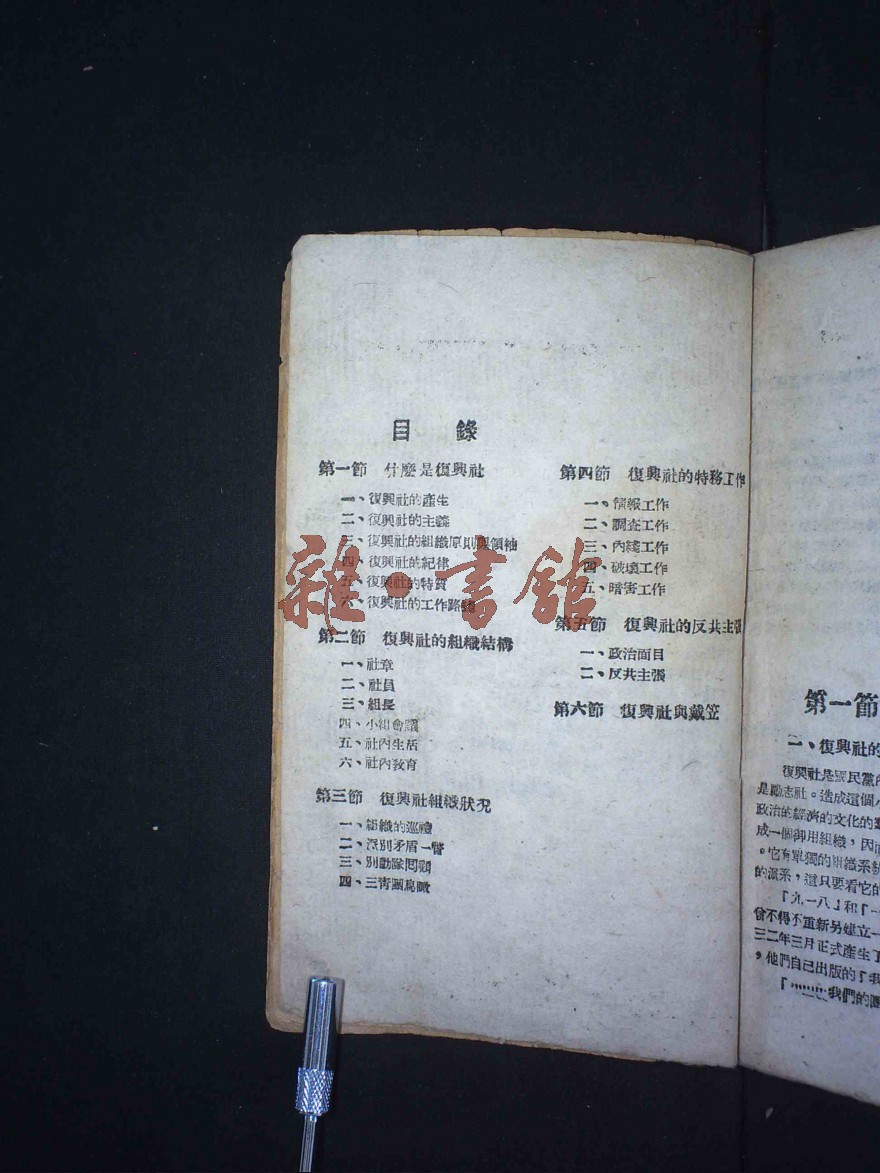 目　錄
第一節　什麼是復興社
一、復興社的產生
二、復興社的主義
三、復興社的組織原則與領袖
四、復興社的紀律
五、復興社的特質
六、復興社的工作路線
第二節　復興社的組織結構
一、社章
二、社員
三、組長
四、小組會議
五、社內生活
六、社內教育
第三節　復興社組織狀况
一、組織的巡禮
二、派別矛盾一瞥
三、別動隊問題
四、三青團鳥瞰
第四節　復興社的特務工作
一、情報工作
二、調查工作
三、內綫工作
四、破壞工作
五、暗害工作
第五節　復興社的反共主張
一、政治面目
二、反共主張
第六節　復興社與戴笠
雜·書館
第一節
一、復興社的
復興社是國民黨內
是勵志社。造成這個
政治的經濟的文化的
成一個御用組織，因而
。它有單獨的組織系統
的派系，這只要看它的
『九一八』和『一
曾不得不重新另建立一
三二年三月正式產生了
，他們自己出版的『我
我們的團